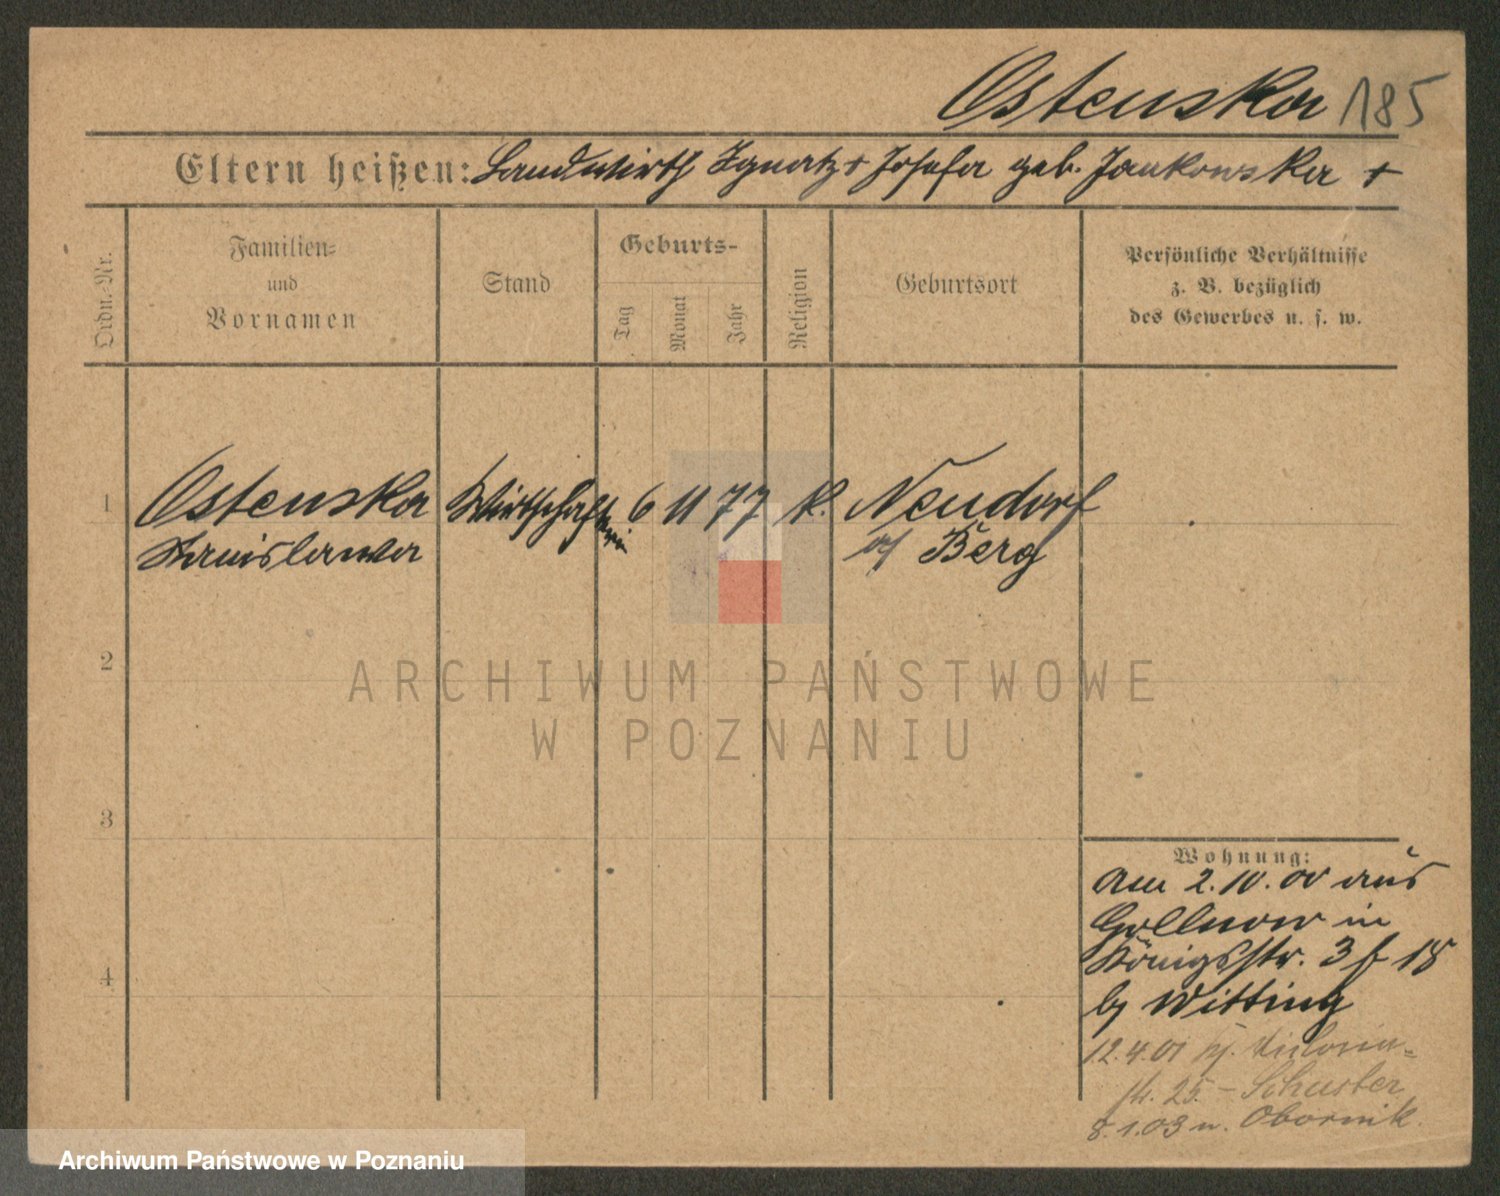 Ostenska 185
Eltern heißen: Landwirth Ignatz + Josefa geb. Jankowska +
Ordn.-Nr.
Familien-
und
Vornamen
Stand
Geburts-
Tag
Monat
Jahr
Religion
Geburtsort
Persönliche Verhältnisse
z. B. bezüglich
des Gewerbes u. s. w.
1 Ostenska Wirthschafterin 6 11 77 k. Neudorf
Stanislawa a/ Berg
2
ARCHIWUM PAŃSTWOWE
W POZNANIU
3
Wohnung:
Am 2.10.00 aus
Gollnow in
Königsstr. 3 f 18
by Witting
4
12.4.01 Viktoria-
str. 25. - Schuster
8.1.03 n. Obornik.
Archiwum Państwowe w Poznaniu